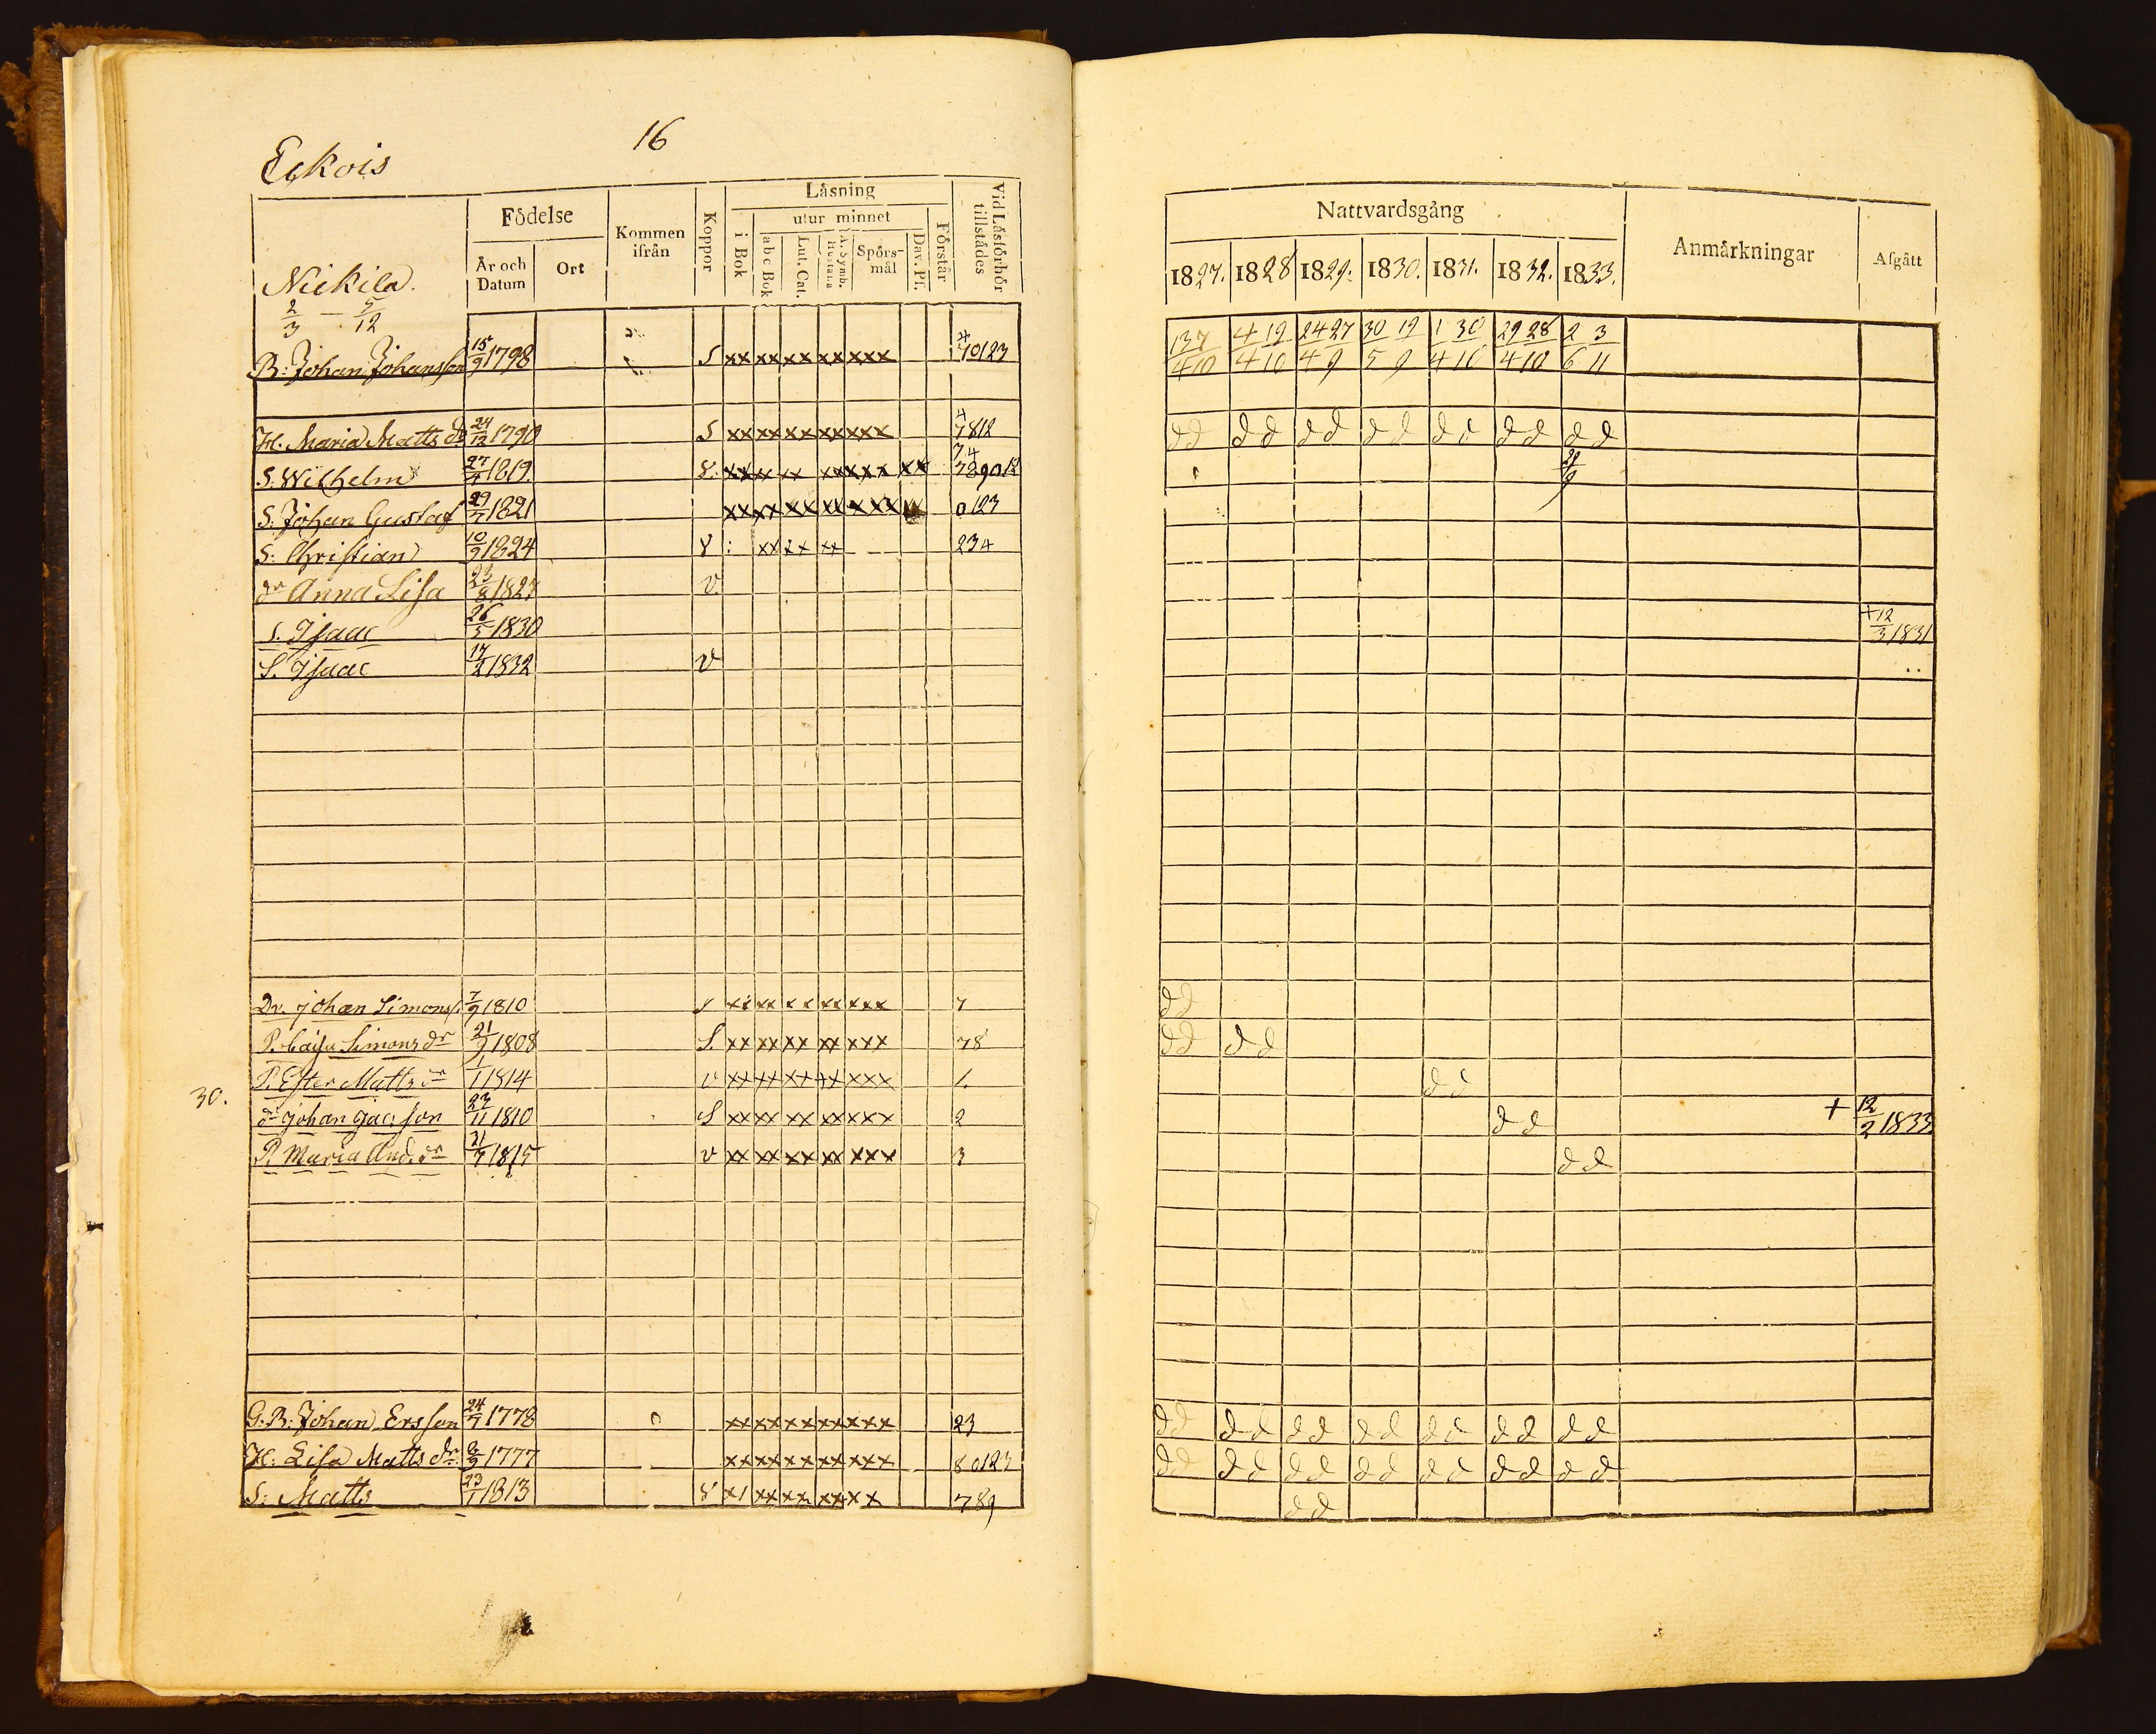 16
Eckois
Födelse
Kommen ifrån
Koppor
Låsning
Vid Låsförhör tillstådes
År och Datum
Ort
i Bok
utur minnet
Förstår
abc Bok
Lut. Cat.
A. Symb. Hustafla
Spörs-mål
Dav. Ps.
Nickila.
2/3 – 5/12
B: Johan Johansson 15/9 1798 S xx xx xx xx xxx 4 70123
H. Maria Matts dr 24/12 1790 S xx xx xx xx xxx 4 7812
S. Wilhelm 27/4 1819. V. xx xx xx xx xxx xx 789012
S. Johan Gustaf 29/7 1821 xx xx xx xx xxx 0123
S: Christian 10/9 1824 V : xx xx xx 234
dr Anna Lisa 23/8 1827 v.
s. Isaac 26/5 1830
S. Isaac 17/2 1832 v
Dr. Johan Simonss. 7/9 1810 s xx xx xx xx xxx 7
P. Cajsa Simons dr 21/9 1808 S. xx xx xx xx xxx 78
P. Ester Matts dr 1/1 1814 v xx xx xx xx xxx 1.
30. dr Johan Jacs son 23/11 1810 S xx xx xx xx xxx 2
P. Maria And. dr 21/7 1815 v xx xx xx xx xxx 3
G.B: Johan Ersson 24/7 1778 xx xx xx xx xxx 23
H: Lisa Matts dr 2/9 1777 xx xx xx xx xxx 80123
S: Matts 23/1 1813 V x1 xx xx xx xx 789
Nattvardsgång
Anmårkningar
Afgått
1827. 1828 1829. 1830. 1831. 1832. 1833.
13 7 4 19 24 27 30 19 1 30 29 28 2 3
4 10 4 10 4 9 5 9 4 10 4 10 6 11
dd dd dd dd dd dd dd
29/9
+ 12/3 1831
dd
dd dd
dd
dd + 12/2 1833
dd
dd dd dd dd dd dd dd
dd dd dd dd dd dd dd
dd